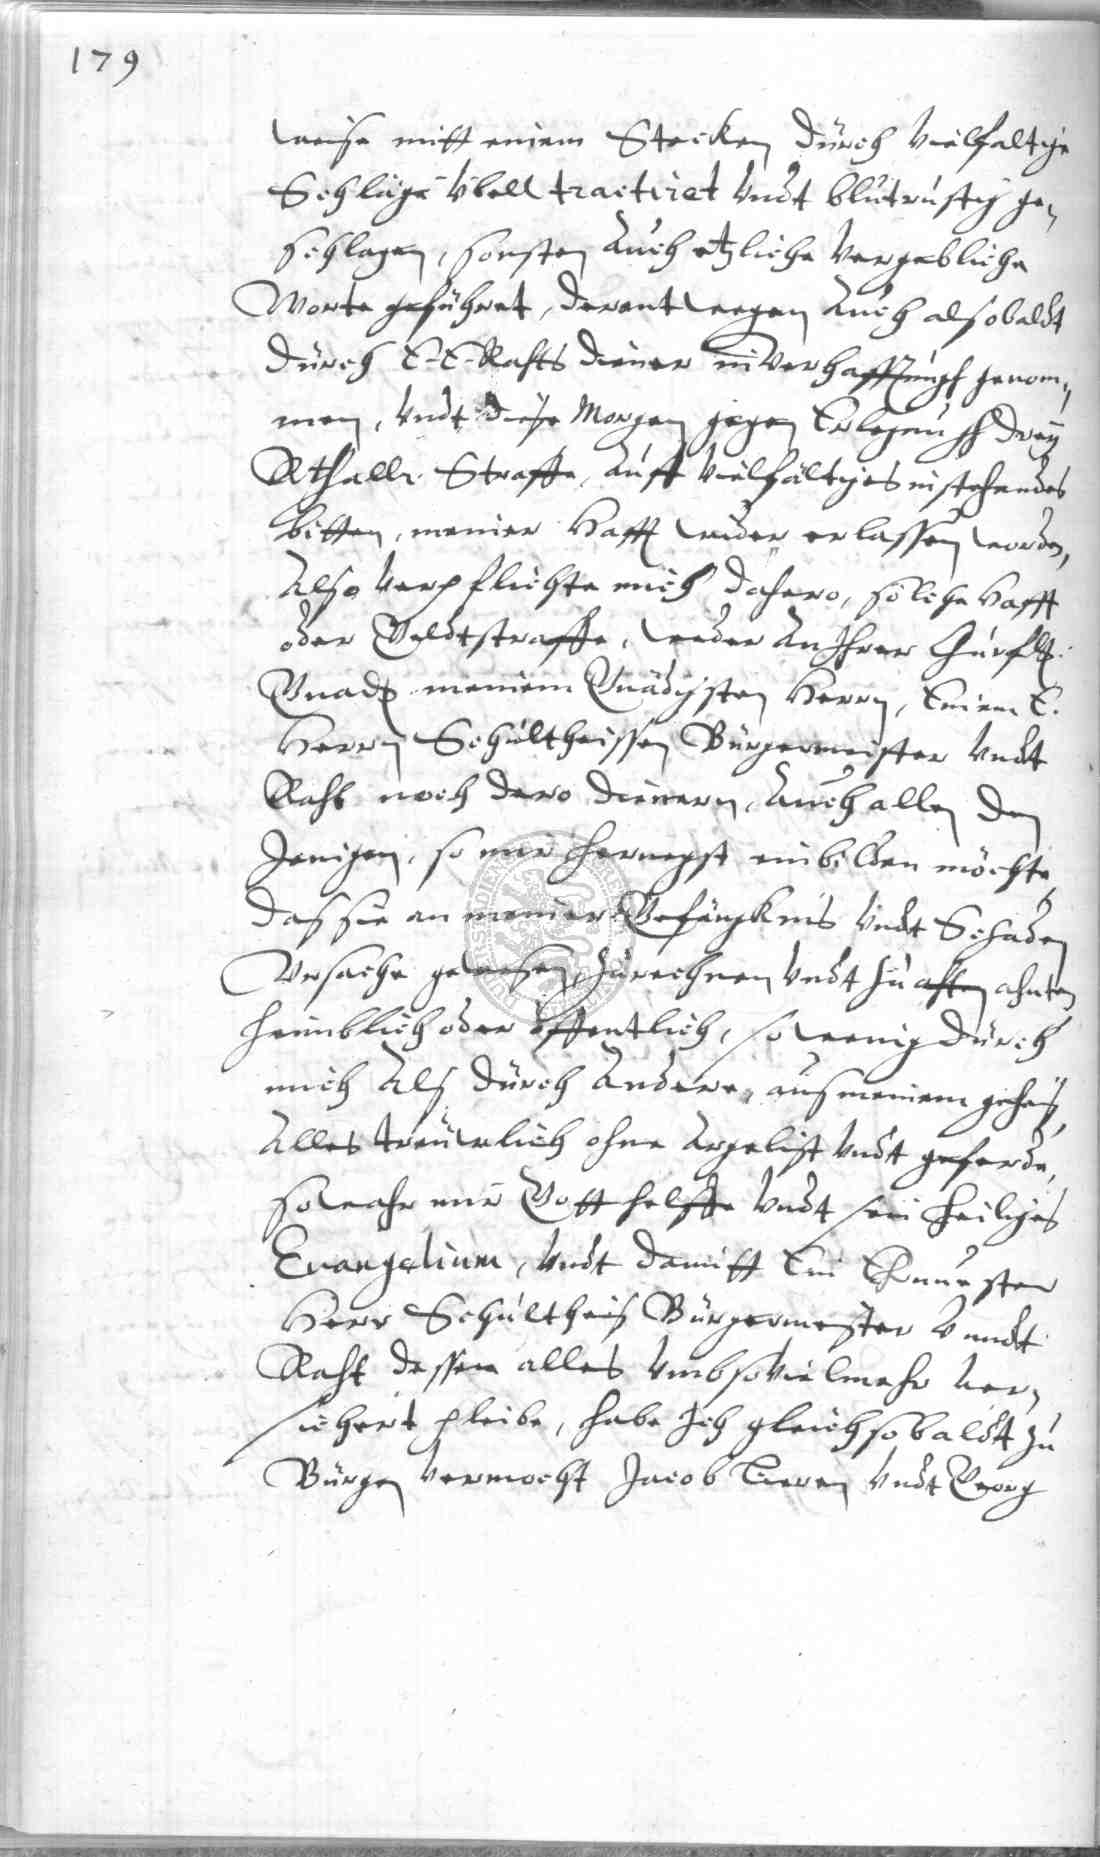 179
weise mitt einem Stecken durch vielfaltige
Schläge übell tractiret undt blutrustig ge-
schlagen, sonsten auch etzliche vergebliche
Worte geführet, derentwegen auch alsobaldt
durch E. E. Rahts diener in verhafftung genom-
men, undt diese Morgen gegen Erlegung drey
Rthalle. Straffe, auff vielfältiges instehendes
bitten, meiner Hafft wider erlassen worden,
Also verpflichte mich dahero, solche Hafft
oder Geldtstraffe, weder an Ihrer Fürstl.
Gnad. meinem Gnädigsten Herrn, Einem E.
Herrn Schultheissen Bürgermeister undt
Raht noch dero dienern, auch allen den
Jenigen, so mir hernegst einbilden möchte
das sie an meiner Gefängknis undt Schaden
Ursache gewesen, zurechnen undt zu ahnten
heimblich oder öffentlich, so wenig durch
mich Als durch Andere, aus meinem geheis,
Alles treuwlich ohne Argelist undt geferde,
so wahr mir Gott helffe undt sein heiliges
Evangelium, undt damitt Ein Ehrnuesten
Herr Schultheis Bürgermeister unndt
Raht dessen alles umb so vielmehr ver-
sichert pleibe, habe Ich gleich sobaldt zu
Bürgen vermocht Jacob undt Georg